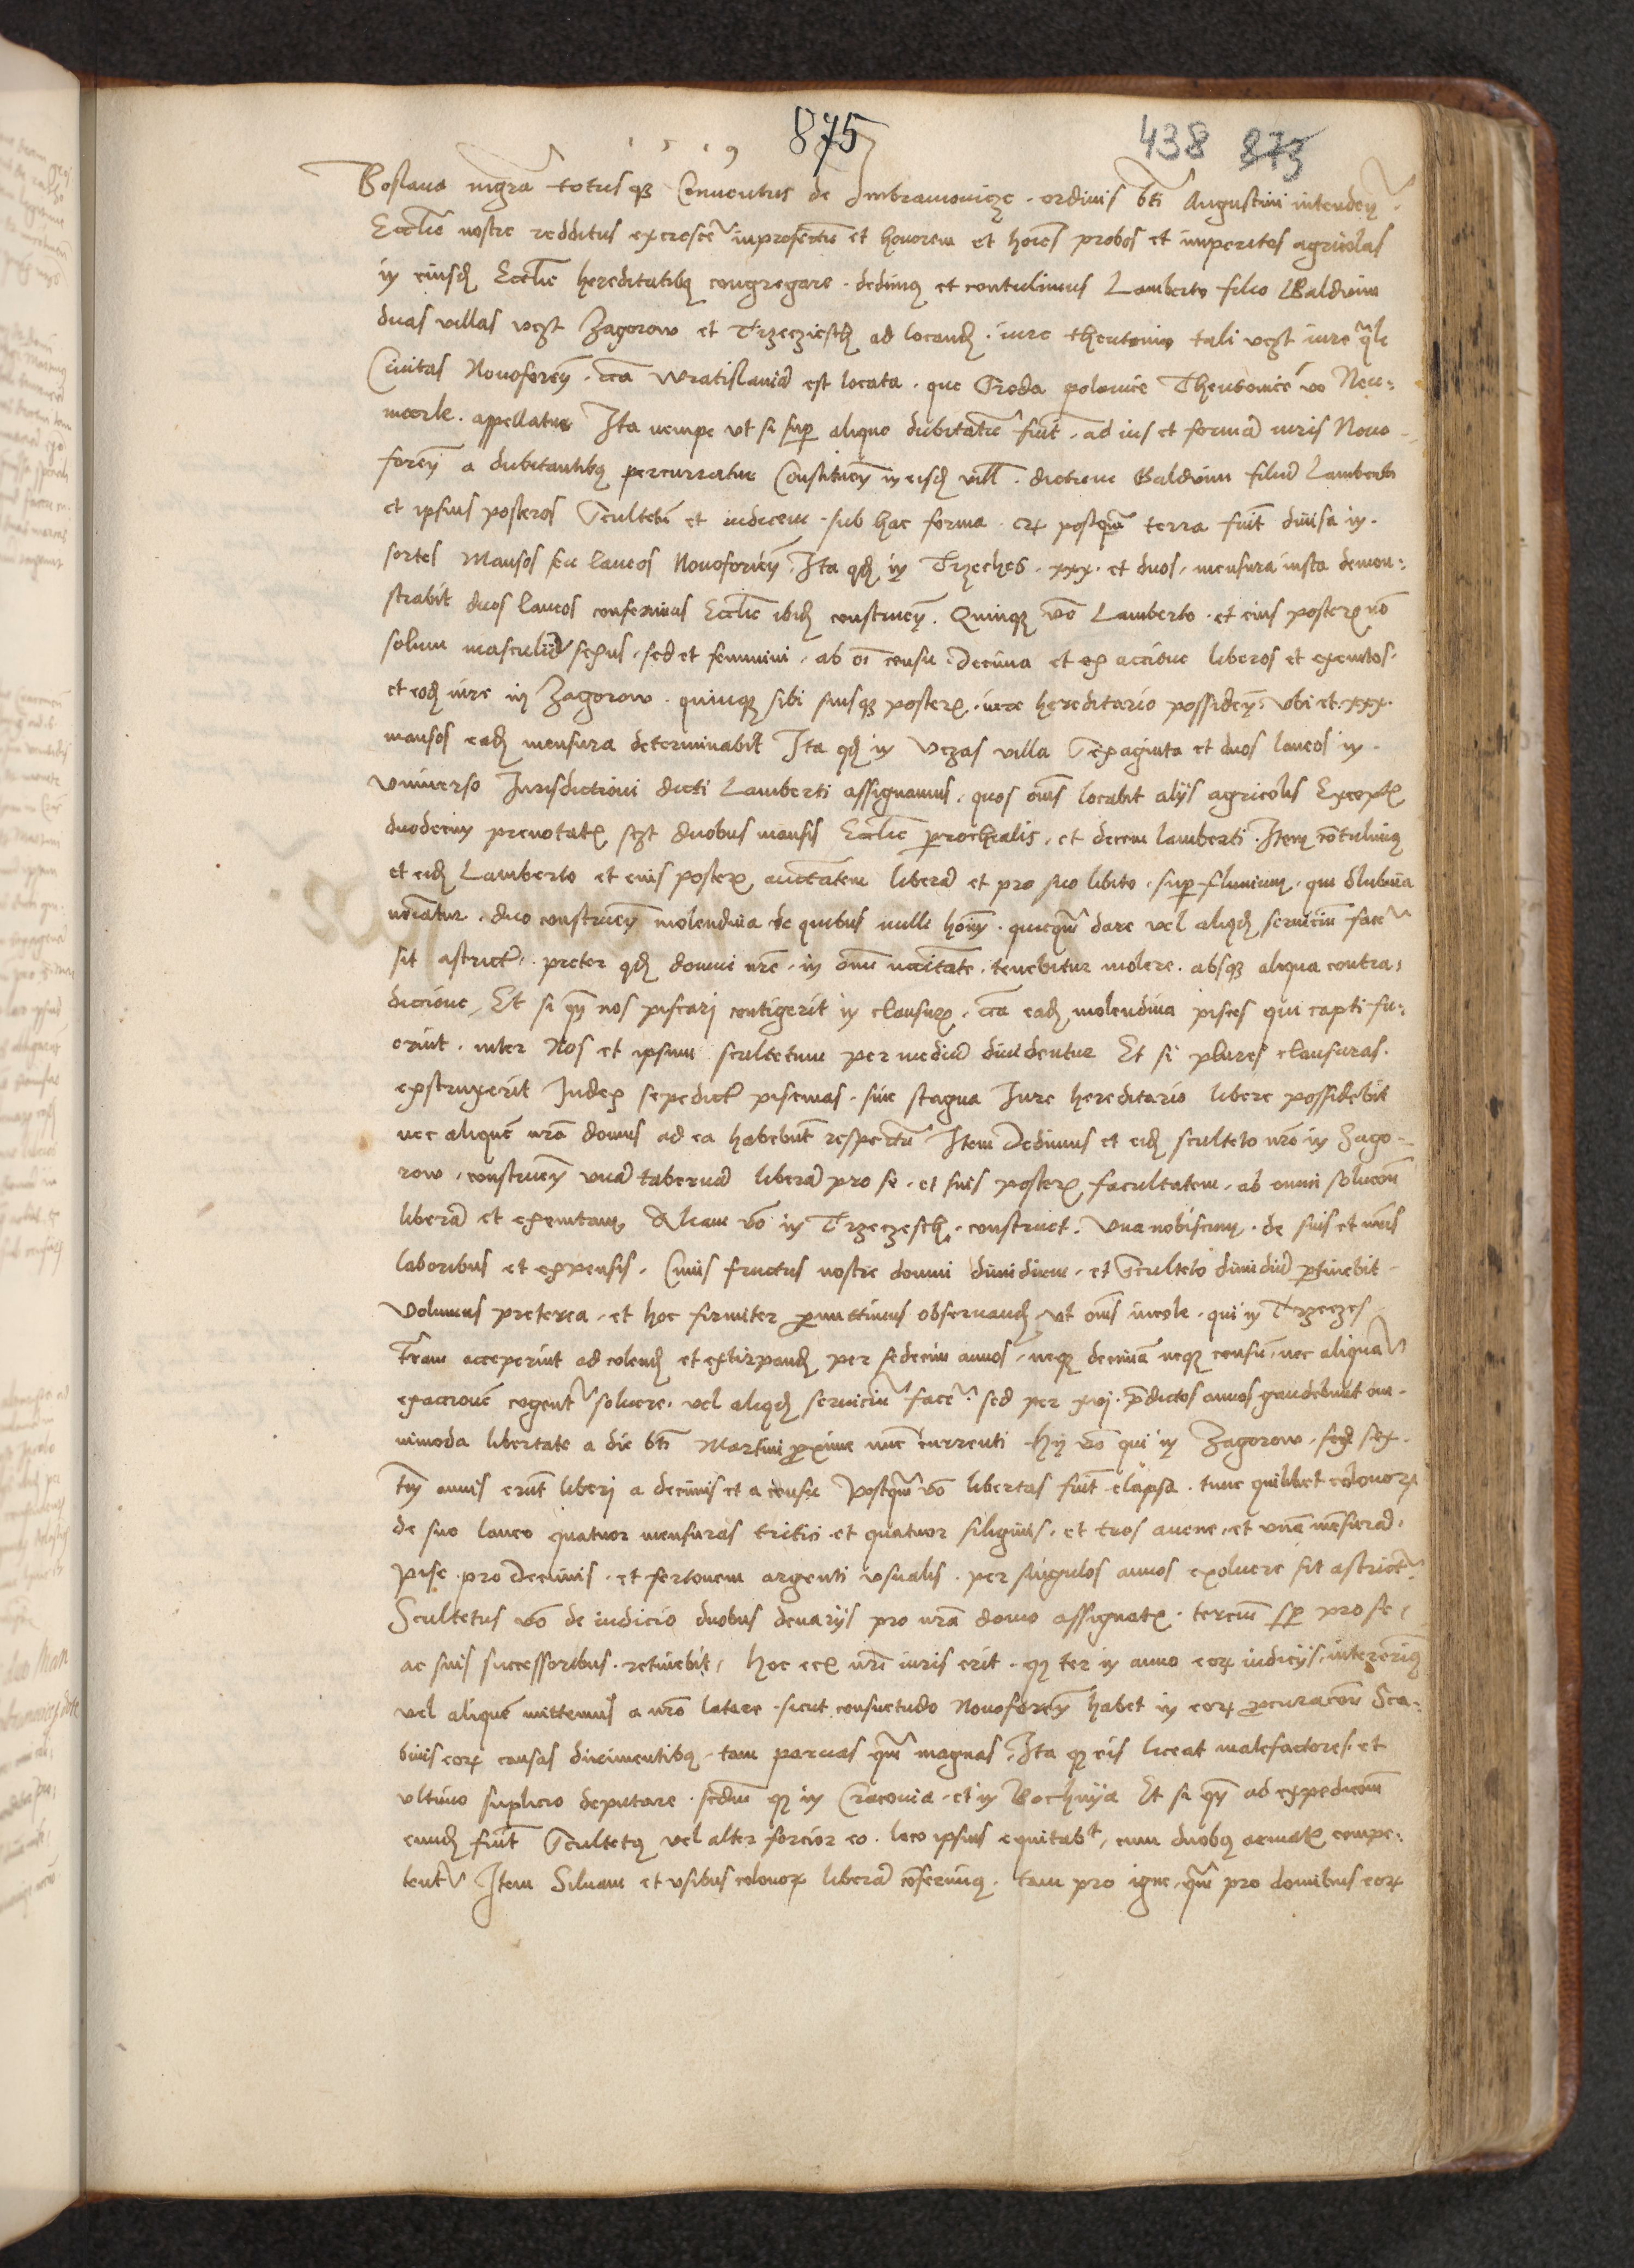 875
438 873
Boslava mgra totusq Conventus de Imbramovicze ordinis bti Augustini intenden
Ecclie nostre redditus excresce in profectu et honorem et hoies probos et imperitos agricolas
in eiusd Ecclie hereditatibq congregare . dedimq et contulimus Lamberto filio Baldvini
duas villas vczt Zagorow et Trzecziesch ad locand . iure theutonico tali vczt iure qle
Civitas Novoforen . cca Wratislaviā est locata . que Croda polonice Theutonice vo Neu:
mark . appellatur Ita nempe vt si sup aliquo dubitatū fuit . ad ius et formā iuris Novo
foren a dubitantibq percurratur Constituen in eisd vill . dictum Baldvini filiū Lambertū
et ipsius posteros Scultetū et iudicem . sub hac forma . postquā terra fuit divisa in .
sortes Mansos seu laneos Novoforien . Ita qd in Trzeches . xxx . et duos . mensura iusta demon:
strabit duos laneos conferimus Ecclie ibid construen . Quinq vo Lamberto . et eius poster nō
solum masculini sexus . sed et feminini . ab oi censu . decima et exaccione liberos et exemtos .
et eod iure in Zagorow . quinq sibi suisq poster . iure hereditario possiden . vbi et . xxx .
mansos ead mensura determinabit Ita qd in vtas villa Sexaginta et duos laneos in .
vniverso Jurisdictioni dicti Lamberti assignamus . quos ōnis locabit alijs agricolis Except
duodecim prenotat . sczt duobus mansis Ecclie prochialis . et decem lamberti . Item cōtulimq
et eid Lamberto et eius poster auctatem liberā et pro suo libito . sup fluvium . qui dlubnia
nōiatur . duo construen molendina de quibus nulli homi . quicqm dare vel aliqd serviciū face
sit astrict . preter qd domui nre . in omi nccitate . tenebitur molere . absq aliqua contra:
diccione , Et si qn nos piscari contigerit in clausur . cca ead molendina pisces qui capti fu:
erint . inter Nos et ipsum scultetum per mediū dividentur Et si plures clausuras .
exstruxerit Judex sepedict piscinas . sive stagna Jure hereditario libere possidebit
nec aliquē nra domus ad ea habebit respectū Item Dedimus et eid sculteto nro in Zago-
row . construen vnā tabernā liberā pro se . et suis poster facultatem . ab omni solucon
liberā et exemtam Aliam vo in Trzeczesch . construet . Vna nobiscum . de suis et nris
laboribus et expensis . Cuius fructus nostre domui dimidium . et Sculteto dimidiū ptinebit .
Volumus preterea . et hoc firmiter pmittimus observand . vt ōnis incole . qui in Trzeczes
terram acceperint ad colend et extirpand per sedecim annos . neq decimā neq censū . nec aliquā
exaccionē cogent solvere . vel aliqd serviciū face . sed per xvj . pdictos annos gaudebunt om-
nimoda libertate a die bti Martini pxime nūc currenti Hij vo qui in Zagorow . sed sex .
tm annis erūt liberi a decimis et a censu Postqm vo libertas fuit elapsa . tunc quilibet colonor
de suo laneo quatuor mensuras tritici . et quatuor siliginis . et tres avene . et vnā mēsurā .
pise . pro Decimis . et fertonem argenti vsualis . per singulos annos exolvere sit astrict
Scultetus vo de iudicio duobus denarijs pro nra domo assignat . terciū sp pro se .
ac suis successoribus . retinebit . Hoc nri iuris erit . q ter in anno eor iudicijs . intererimq
vel aliquē mittemus a nro latere . sicut consuetudo Novoforen habet in eor pcuracon Sca:
binis eor causas dirimentibq . tam parvas qm magnas . Ita q eis liceat malefactores . et
vltimo suplicio deputare . scdm q in Cracovia . et in Bochnija Et si qn ad expedicom
eund fuit Scultetq vel alter forcior eo . loco ipsius equitabt . cum duobq armat compe:
tent Item Silvam et vsibus colonor liberā cōferimq . tam pro igne . qm pro domibus eor